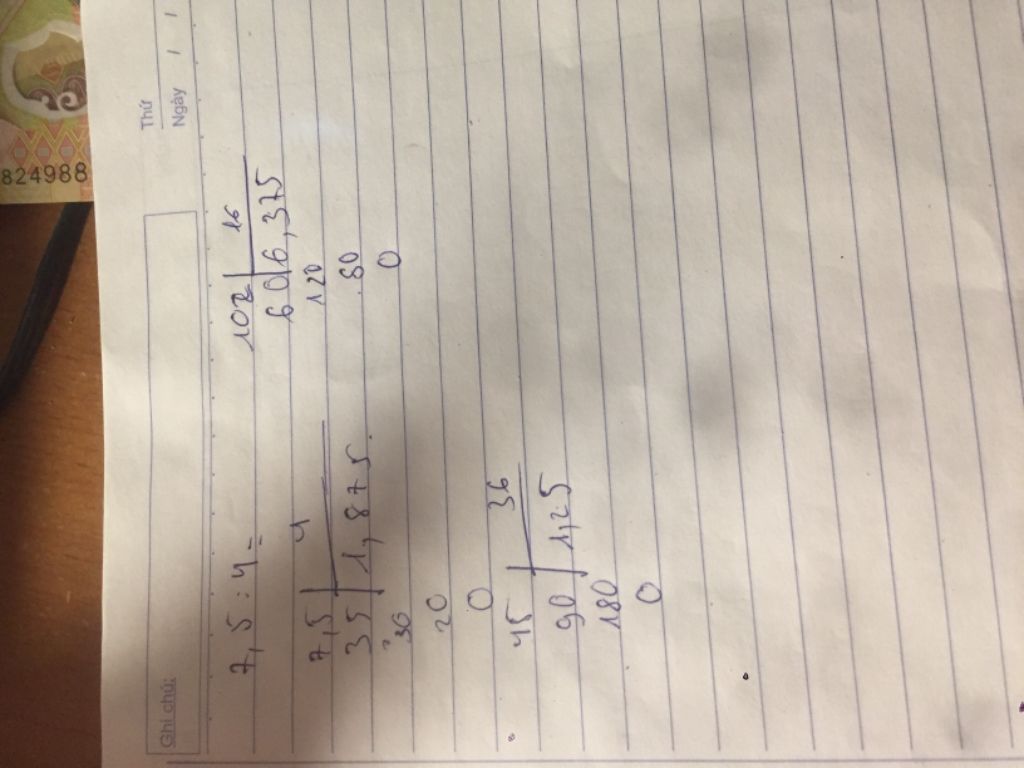 824988
Thứ
Ngày / /
Ghi chú:
7,5 : 4 =
7,5 4
35 1,875
30
20
0
102 16
60 6,375
120
80
0
45 36
90 1,25
180
0